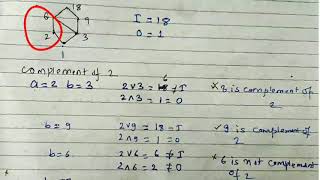 18
6
9
2
3
1
I = 18
O = 1
complement of 2
a=2 b=3 2∨3 = 6 ≠ I
2∧3 = 1 = 0
b=9 2∨9 = 18 = I
2∧9 = 1 = 0
✓ 9 is complement of
2
b=6 2∨6 = 6 ≠ I
2∧6 = 2 ≠ 0
6 is not complement
of 2